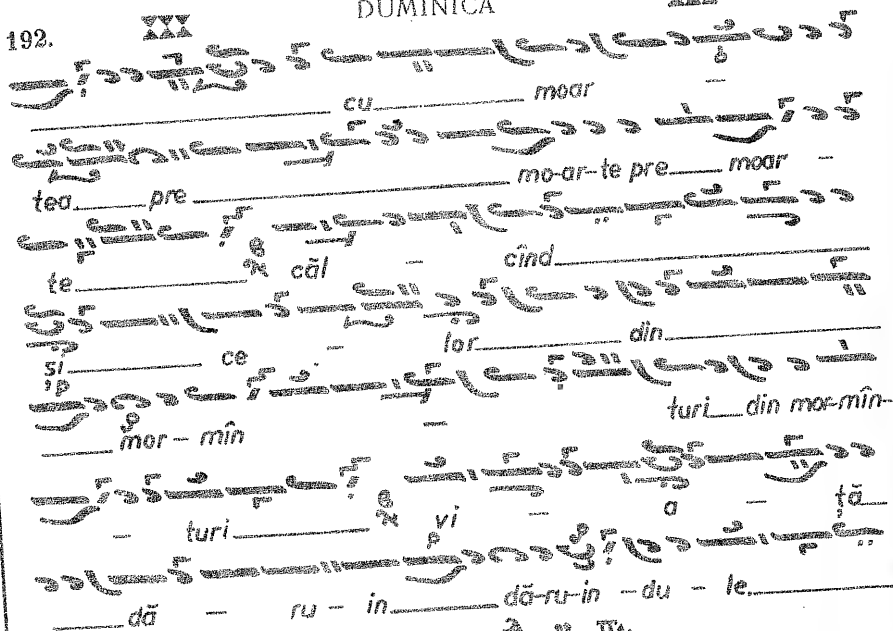 DUMINICA
192.
cu moar –
tea pre mo-ar-te pre moar –
te căl – cînd
și ce – lor din
mor – mîn – turi din mor-mîn-
– turi vi – a – ță
dă – ru – in dă-ru-in – du – le